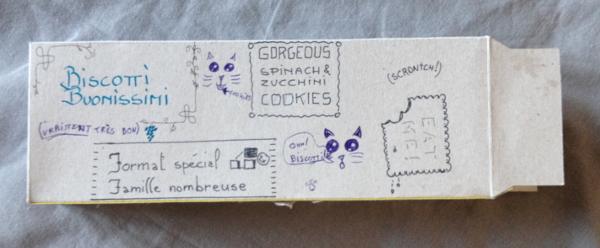 Biscotti
Buonissimi
(vraiment très bon)
GORGEOUS
SPINACH &
ZUCCHINI
COOKIES
(SCRONTCH!)
EAT
ME!
Format spécial
Famille nombreuse
Ohh!
BISCOTTI